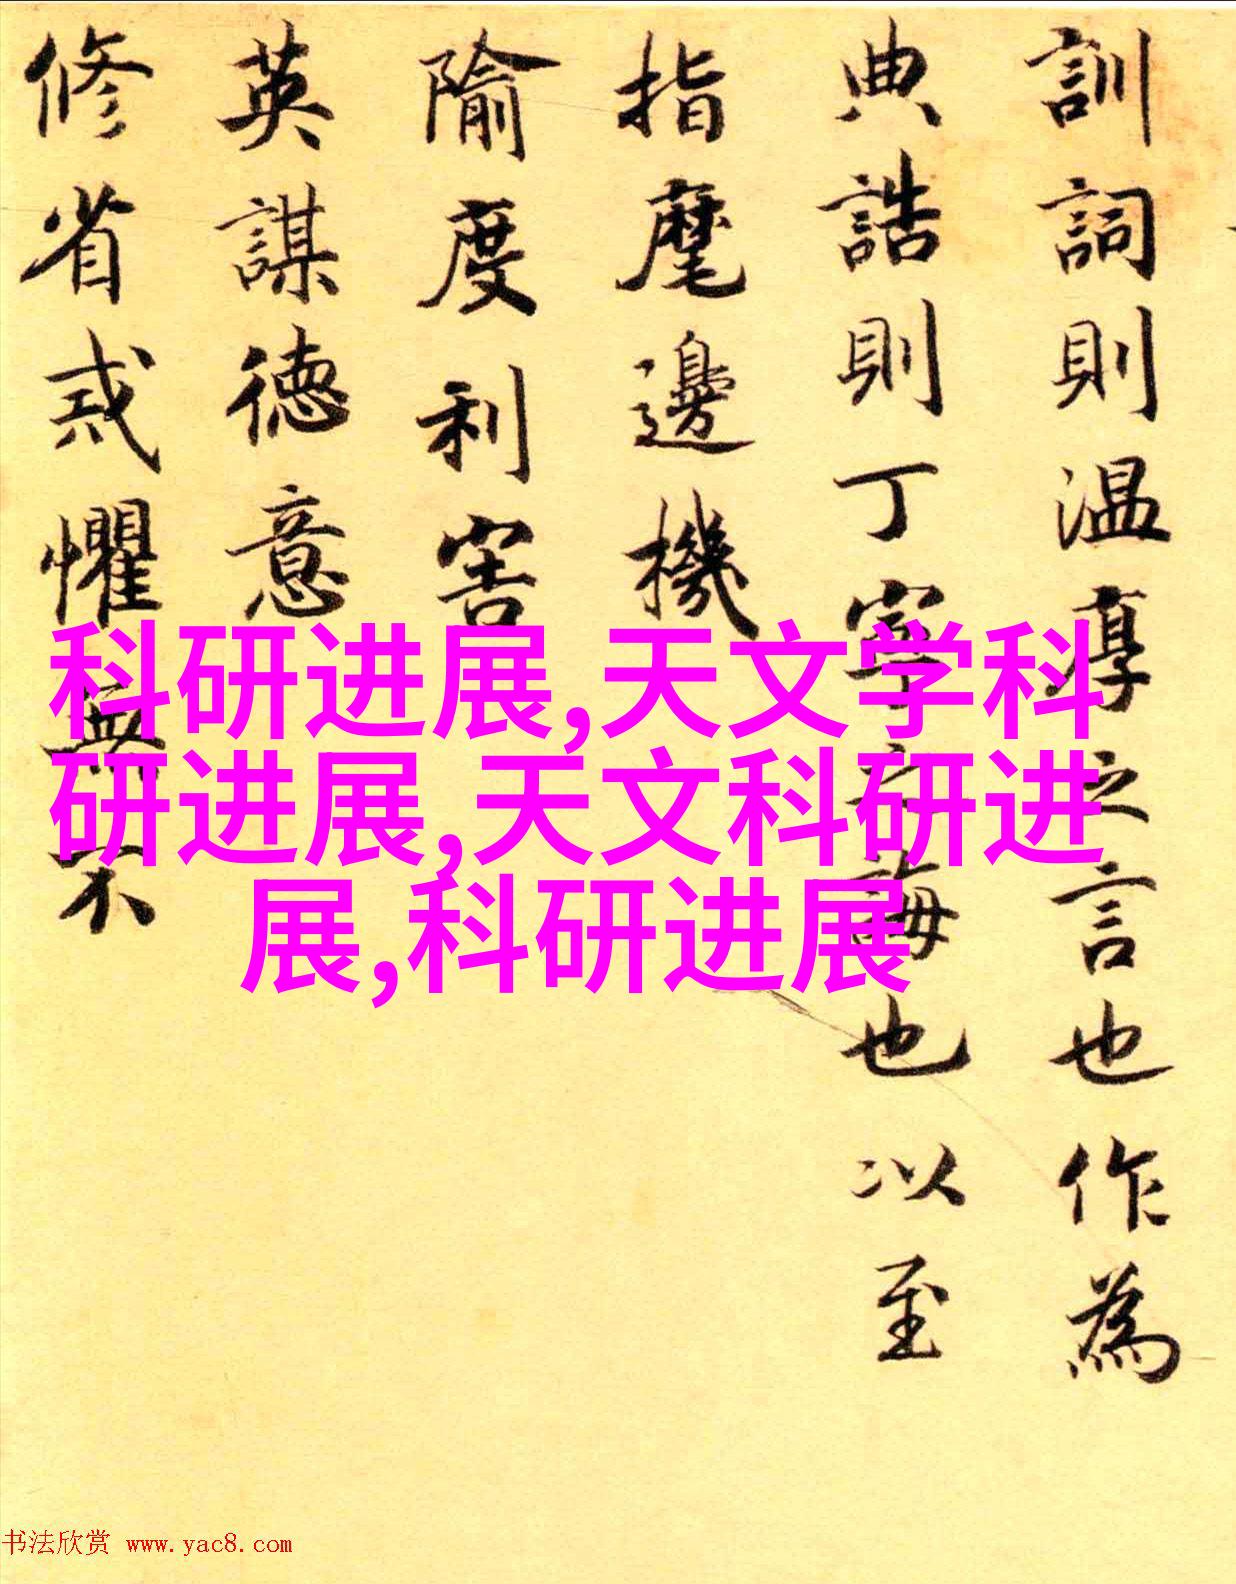 訓詞則温厚之言也作為
典誥則丁寧之誨也以至
指麾邊機
隃度利害
英謀徳意
修省戒懼無不
科研进展,天文学科
研进展,天文科研进
展,科研进展
书法欣赏 www.yac8.com